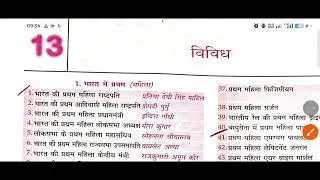 09:34
13
विविध
1. भारत में प्रथम (महिला)
1. भारत की प्रथम महिला राष्ट्रपति प्रतिभा देवी सिंह पाटिल
2. भारत की प्रथम आदिवासी महिला राष्ट्रपति द्रौपदी मुर्मू
3. भारत की प्रथम महिला प्रधानमंत्री इन्दिरा गाँधी
4. भारत की प्रथम महिला लोकसभा अध्यक्ष मीरा कुमार
5. लोकसभा के प्रथम महिला महासचिव स्नेहलता श्रीवास्तव
6. भारत की प्रथम महिला राज्यसभा उपसभापति वायलेट अल्वा
7. भारत की प्रथम महिला केन्द्रीय मंत्री राजकुमारी अमृत कौर
37. प्रथम महिला फिजिशियन
38. प्रथम महिला सर्जन
39. भारतीय रेल की प्रथम महिला
40. वायुसेना में प्रथम महिला
41. प्रथम महिला एयरबस पायलट
42. प्रथम महिला लेफ्टिनेंट जनरल
43. प्रथम महिला एयर वाइस मार्शल